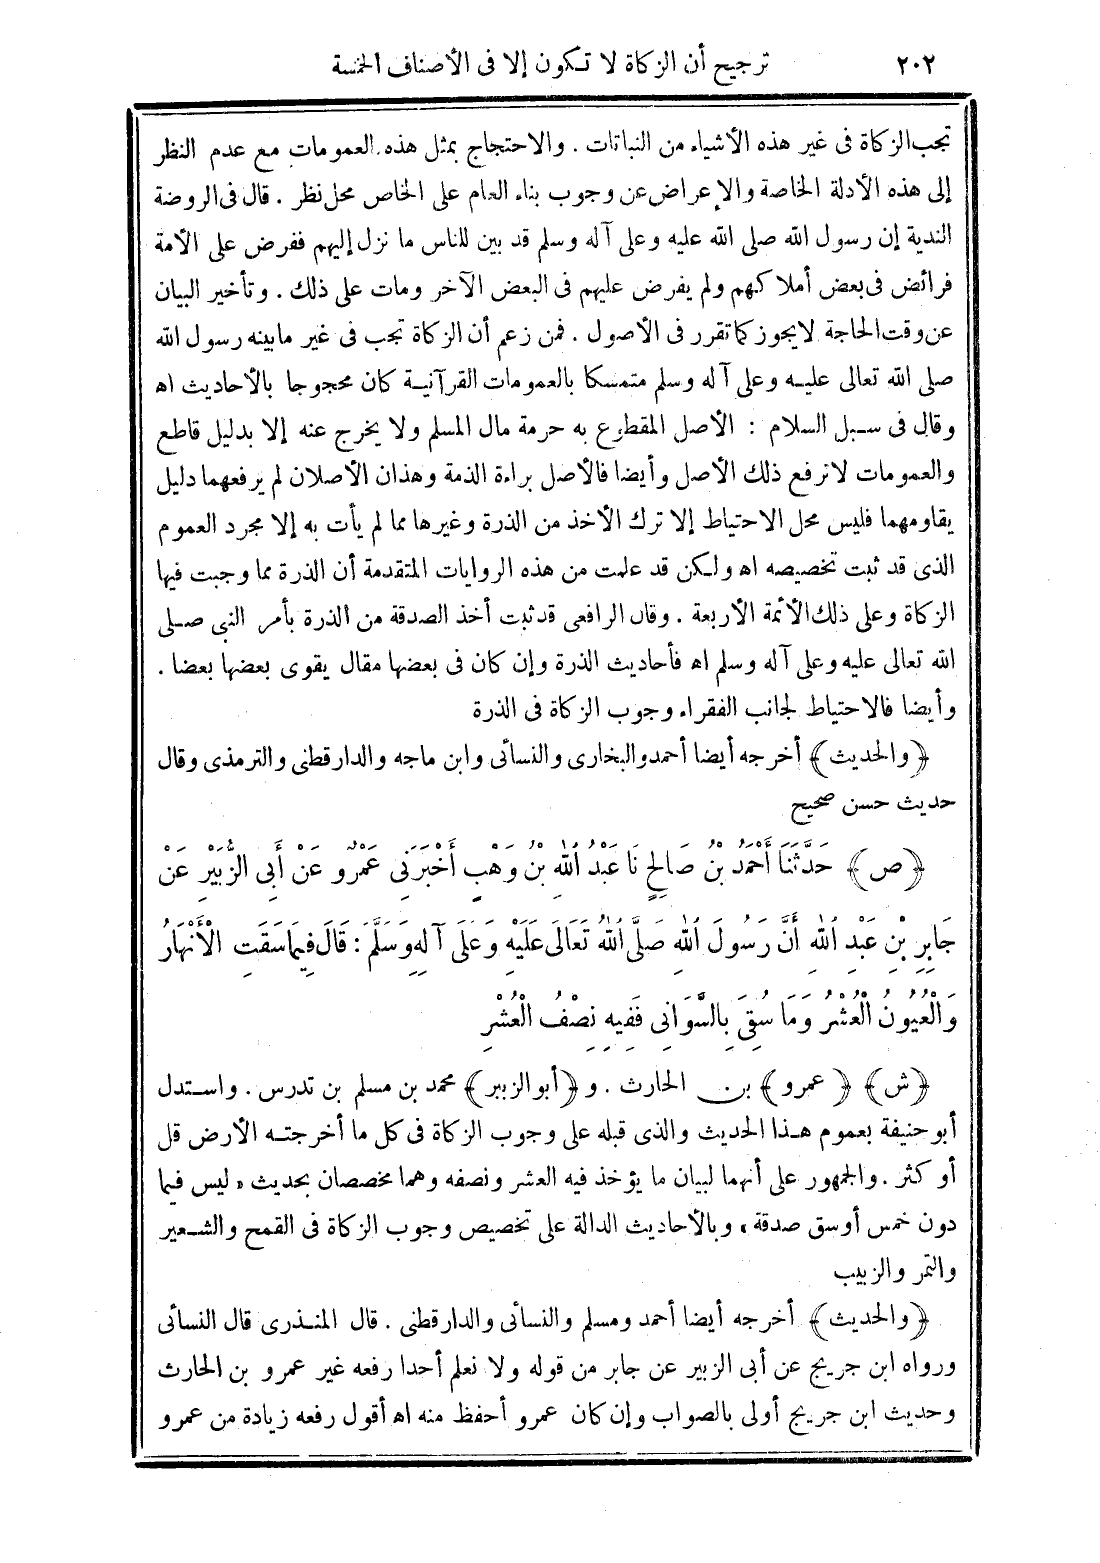 ٢٠٢ ترجيح أن الزكاة لا تكون إلا فى الأصناف الخمسة
تجب الزكاة فى غير هذه الأشياء من النباتات . والاحتجاج بمثل هذه العمومات مع عدم النظر
إلى هذه الأدلة الخاصة والإعراض عن وجوب بناء العام على الخاص محل نظر . قال فى الروضة
الندية إن رسول الله صلى الله عليه وعلى آله وسلم قد بين للناس ما نزل إليهم ففرض على الأمة
فرائض فى بعض أملاكهم ولم يفرض عليهم فى البعض الآخر ومات على ذلك . وتأخير البيان
عن وقت الحاجة لا يجوز كما تقرر فى الأصول . فمن زعم أن الزكاة تجب فى غير ما بينه رسول الله
صلى الله تعالى عليه وعلى آله وسلم متمسكا بالعمومات القرآنية كان محجوجا بالأحاديث اه
وقال فى سبل السلام : الأصل المقطوع به حرمة مال المسلم ولا يخرج عنه إلا بدليل قاطع
والعمومات لا ترفع ذلك الأصل وأيضا فالأصل براءة الذمة وهذان الأصلان لم يرفعهما دليل
يقاومهما فليس محل الاحتياط إلا ترك الأخذ من الذرة وغيرها مما لم يأت به إلا مجرد العموم
الذى قد ثبت تخصيصه اه ولكن قد علمت من هذه الروايات المتقدمة أن الذرة مما وجبت فيها
الزكاة وعلى ذلك الأئمة الأربعة . وقال الرافعى قد ثبت أخذ الصدقة من الذرة بأمر النبى صلى
الله تعالى عليه وعلى آله وسلم اه فأحاديث الذرة وإن كان فى بعضها مقال يقوى بعضها بعضا .
وأيضا فالاحتياط لجانب الفقراء وجوب الزكاة فى الذرة
﴿والحديث﴾ أخرجه أيضا أحمد والبخارى والنسائى وابن ماجه والدارقطنى والترمذى وقال
حديث حسن صحيح
﴿ص﴾ حَدَّثَنَا أَحْمَدُ بْنُ صَالِحٍ نَا عَبْدُ اللهِ بْنُ وَهْبٍ أَخْبَرَنِى عَمْرٌو عَنْ أَبِى الزُّبَيْرِ عَنْ
جَابِرِ بْنِ عَبْدِ اللهِ أَنَّ رَسُولَ اللهِ صَلَّى اللهُ تَعَالَى عَلَيْهِ وَعَلَى آلِهِ وَسَلَّمَ : قَالَ فِيمَا سَقَتِ الْأَنْهَارُ
وَالْعُيُونُ الْعُشْرُ وَمَا سُقِىَ بِالسَّوَانِى فَفِيهِ نِصْفُ الْعُشْرِ
﴿ش﴾ ﴿عمرو﴾ بن الحارث . و﴿أبو الزبير﴾ محمد بن مسلم بن تدرس . واستدل
أبو حنيفة بعموم هذا الحديث والذى قبله على وجوب الزكاة فى كل ما أخرجته الأرض قل
أو كثر . والجمهور على أنهما لبيان ما يؤخذ فيه العشر ونصفه وهما مخصصان بحديث «ليس فيما
دون خمس أوسق صدقة» وبالأحاديث الدالة على تخصيص وجوب الزكاة فى القمح والشعير
والتمر والزبيب
﴿والحديث﴾ أخرجه أيضا أحمد ومسلم والنسائى والدارقطنى . قال المنذرى قال النسائى
ورواه ابن جريج عن أبى الزبير عن جابر من قوله ولا نعلم أحدا رفعه غير عمرو بن الحارث
وحديث ابن جريج أولى بالصواب وإن كان عمرو أحفظ منه اه أقول رفعه زيادة من عمرو